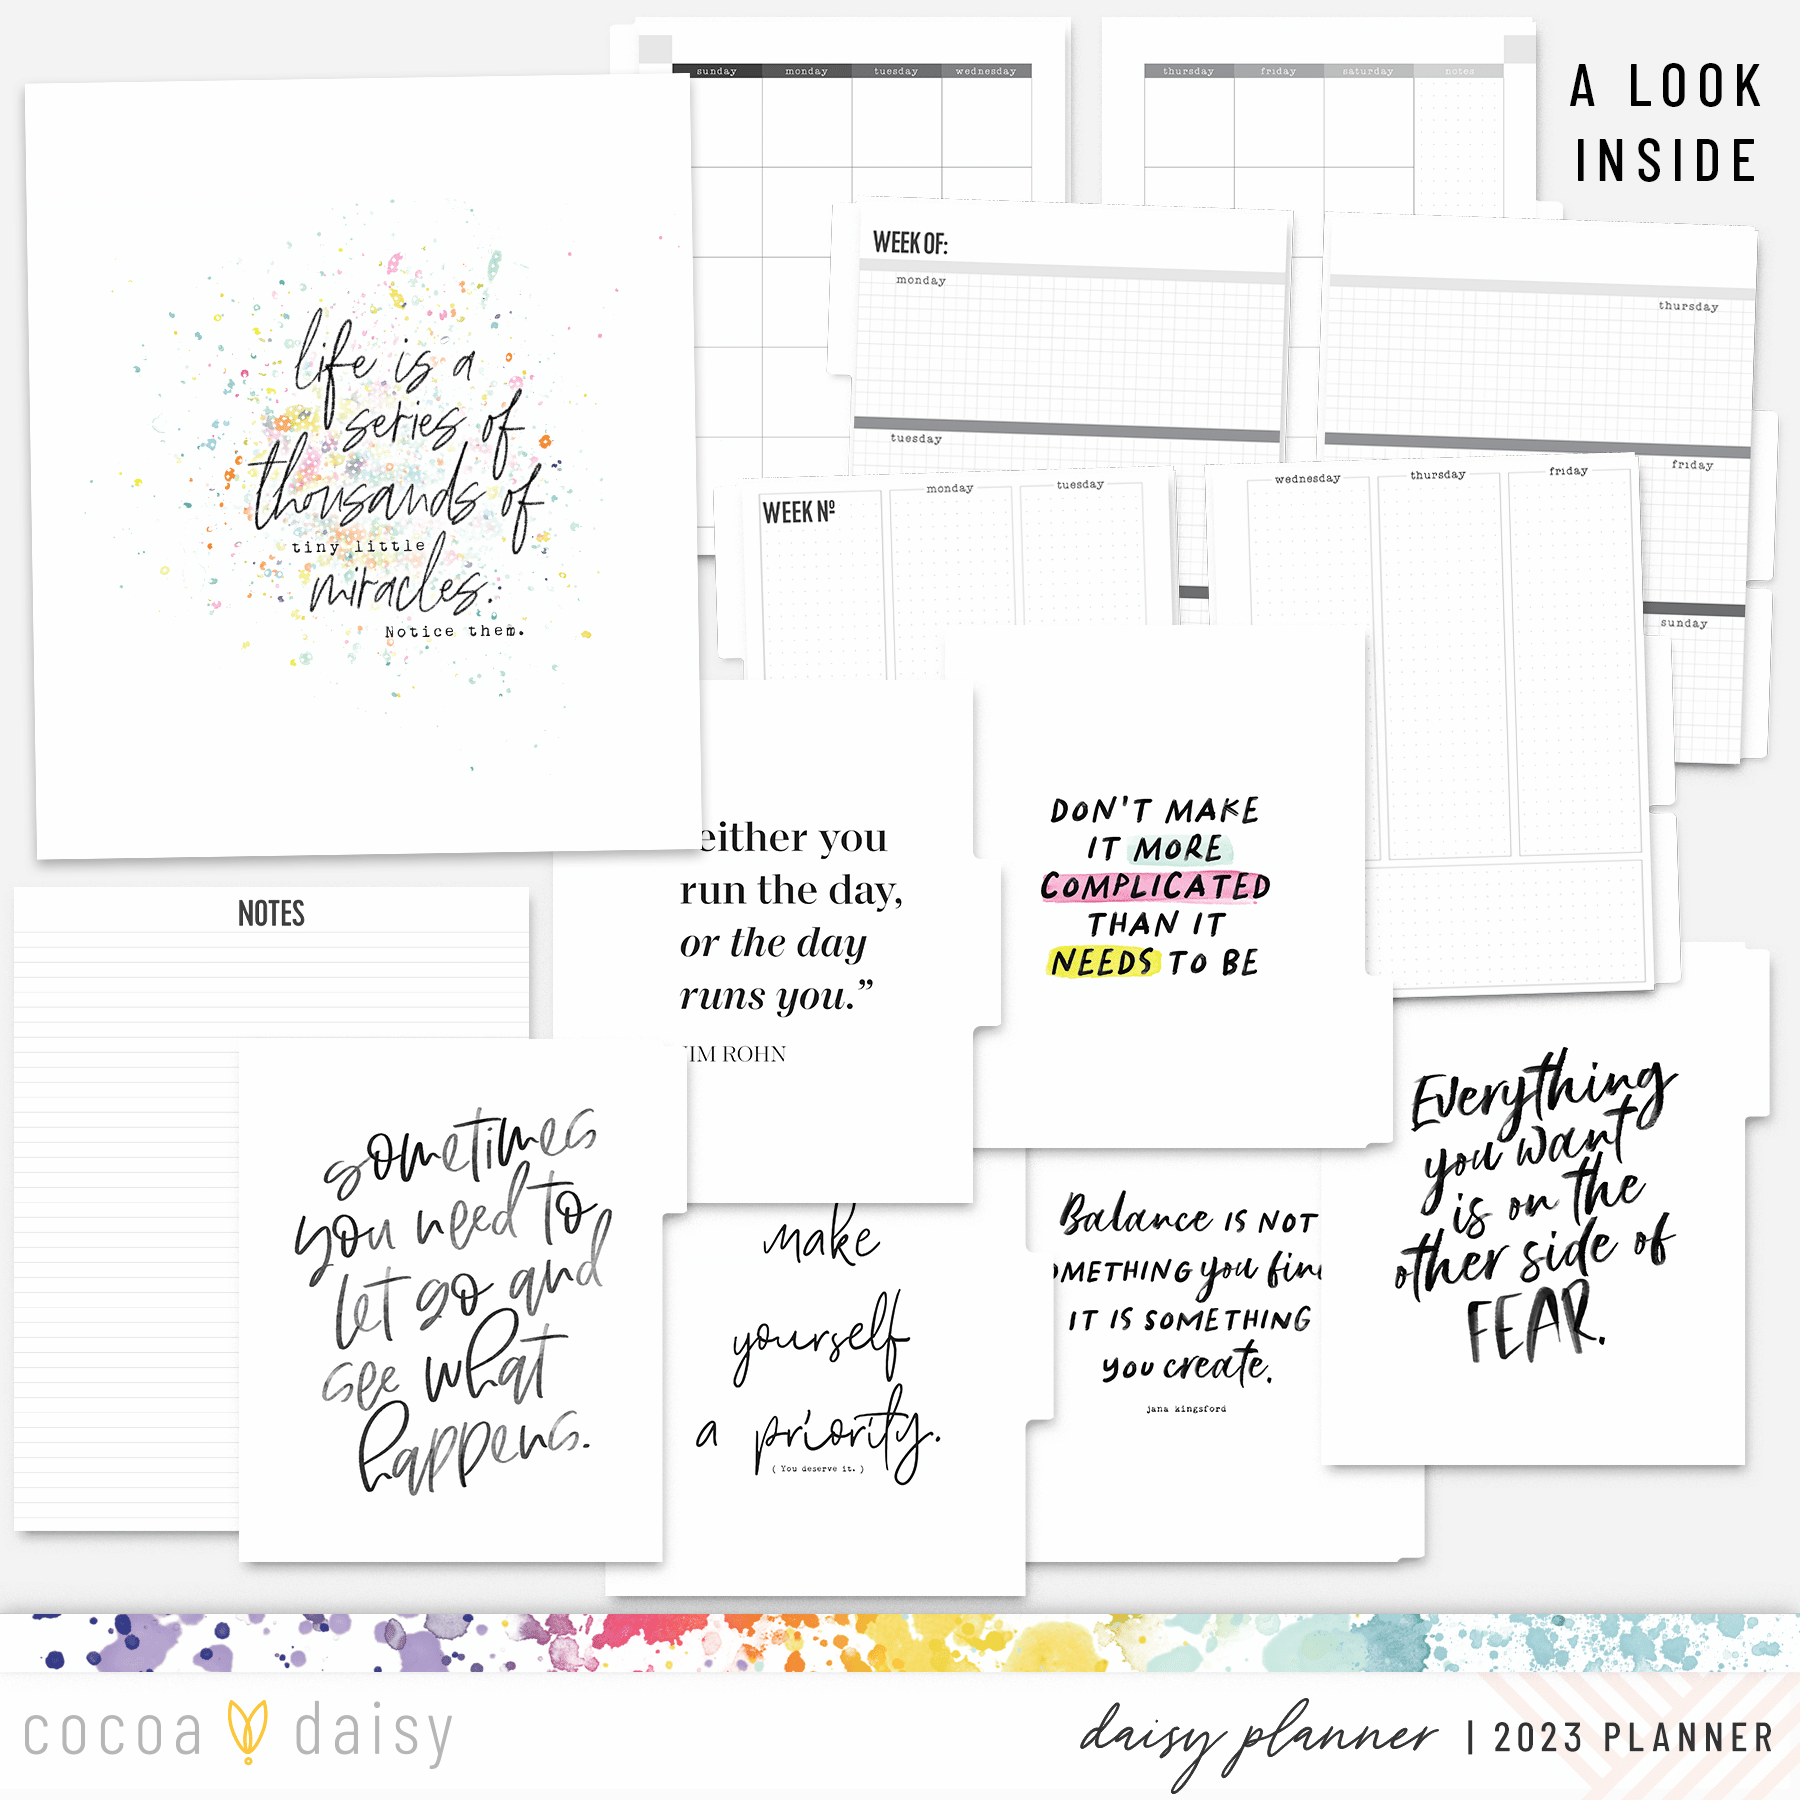 A LOOK
INSIDE
sunday monday tuesday wednesday
thursday friday saturday notes
WEEK OF:
monday
tuesday
thursday
friday
sunday
WEEK Nº
monday
tuesday
wednesday
thursday
friday
life is a
series of
thousands of
tiny little
miracles.
Notice them.
either you
run the day,
or the day
runs you.”
JIM ROHN
DON'T MAKE
IT MORE
COMPLICATED
THAN IT
NEEDS TO BE
NOTES
sometimes
you need to
let go and
see what
happens.
make
yourself
a priority.
( You deserve it. )
Balance IS NOT
OMETHING you fin
IT IS SOMETHING
you create.
jana kingsford
Everything
you want
is on the
other side of
FEAR.
cocoa daisy
daisy planner | 2023 PLANNER